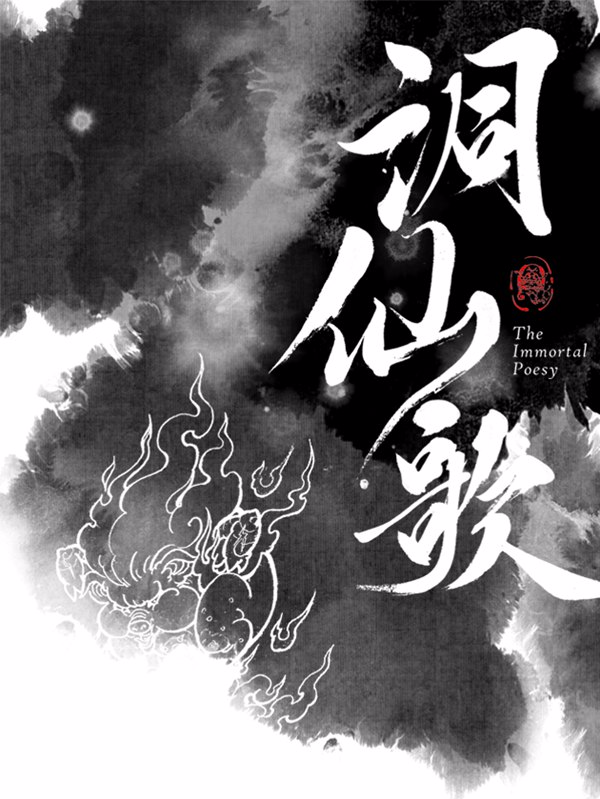 词仙歌
The
Immortal
Poesy